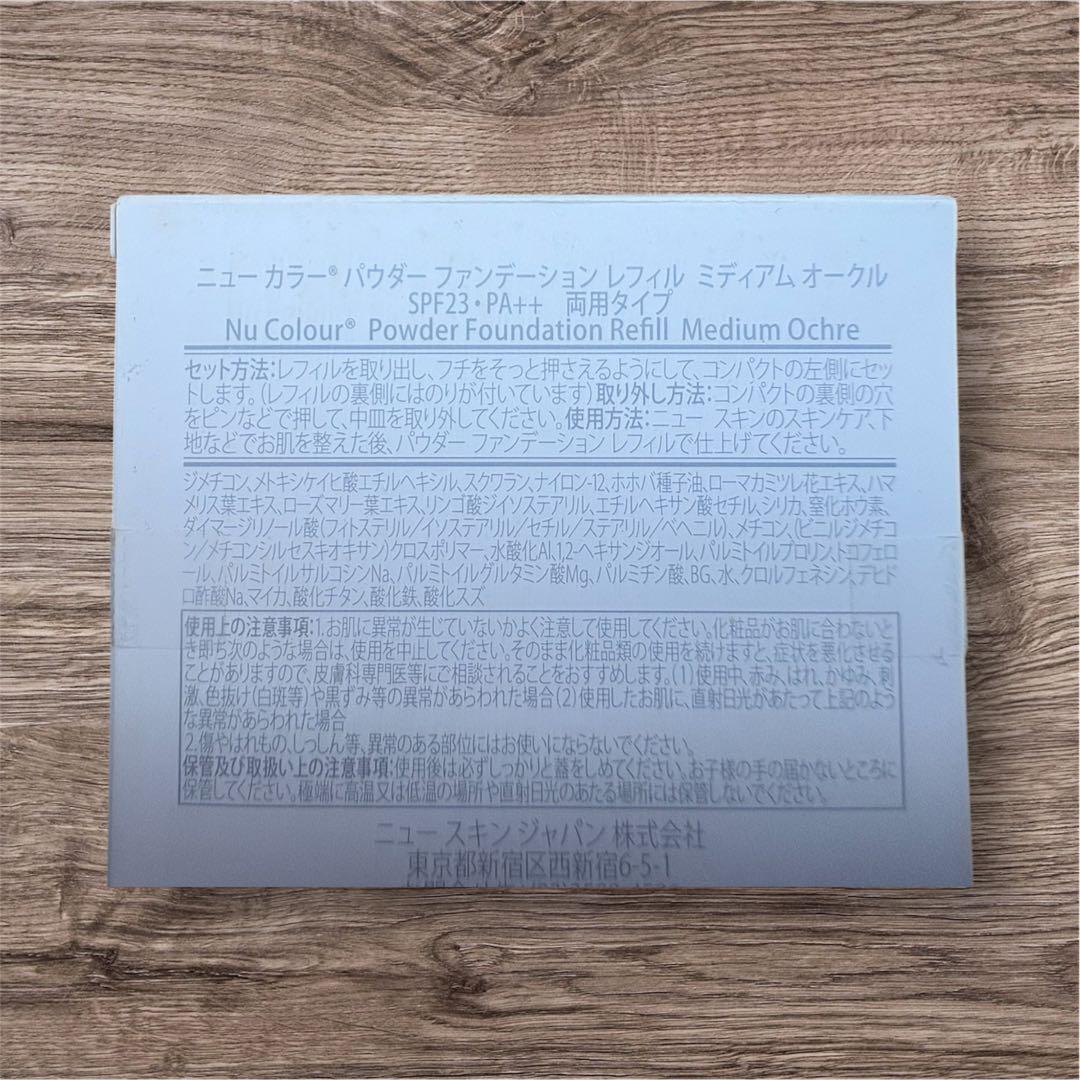 ニュー カラー® パウダー ファンデーション レフィル ミディアム オークル
SPF23・PA++ 両用タイプ
Nu Colour® Powder Foundation Refill Medium Ochre
セット方法:レフィルを取り出し、フチをそっと押さえるようにして、コンパクトの左側にセッ
トします。(レフィルの裏側にはのりが付いています)取り外し方法:コンパクトの裏側の穴
をピンなどで押して、中皿を取り外してください。使用方法:ニュー スキンのスキンケア、下
地などでお肌を整えた後、パウダー ファンデーション レフィルで仕上げてください。
ジメチコン、メトキシケイヒ酸エチルヘキシル、スクワラン、ナイロン-12、ホホバ種子油、ローマカミツレ花エキス、ハマ
メリス葉エキス、ローズマリー葉エキス、リンゴ酸ジイソステアリル、エチルヘキサン酸セチル、シリカ、窒化ホウ素、
ダイマージリノール酸(フィトステリル/イソステアリル/セチル/ステアリル/ベヘニル)、メチコン、(ビニルジメチコ
ン/メチコンシルセスキオキサン)クロスポリマー、水酸化Al、1,2-ヘキサンジオール、パルミトイルプロリン、トコフェロ
ール、パルミトイルサルコシンNa、パルミトイルグルタミン酸Mg、パルミチン酸、BG、水、クロルフェネシン、デヒド
ロ酢酸Na、マイカ、酸化チタン、酸化鉄、酸化スズ
使用上の注意事項:1.お肌に異常が生じていないかよく注意して使用してください。化粧品がお肌に合わないと
き即ち次のような場合は、使用を中止してください。そのまま化粧品類の使用を続けますと、症状を悪化させる
ことがありますので、皮膚科専門医等にご相談されることをおすすめします。(1)使用中、赤み、はれ、かゆみ、刺
激、色抜け(白斑等)や黒ずみ等の異常があらわれた場合(2)使用したお肌に、直射日光があたって上記のよう
な異常があらわれた場合
2.傷やはれもの、しっしん等、異常のある部位にはお使いにならないでください。
保管及び取扱い上の注意事項:使用後は必ずしっかりと蓋をしめてください。お子様の手の届かないところに
保管してください。極端に高温又は低温の場所や直射日光のあたる場所には保管しないでください。
ニュー スキン ジャパン 株式会社
東京都新宿区西新宿6-5-1